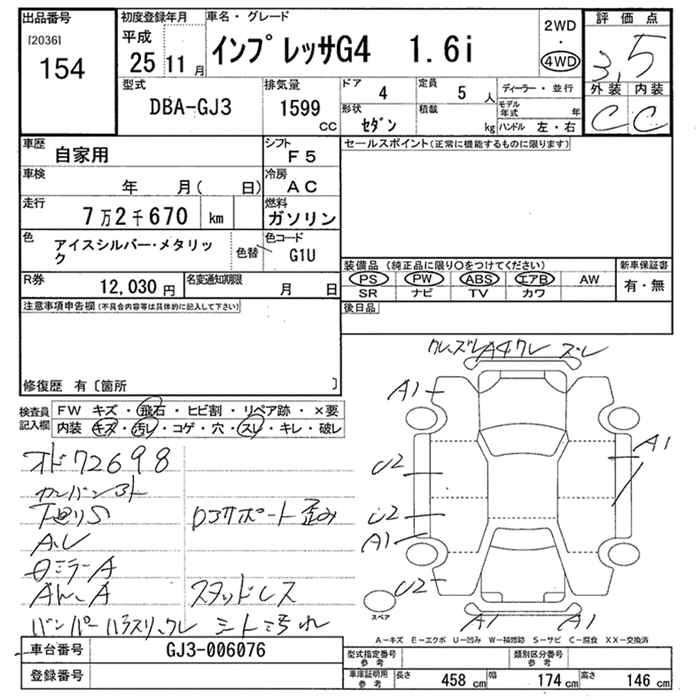 出品番号 初度登録年月 車名・グレード 2WD 評価点
[2036] 平成 インプレッサG4 1.6i ・ 3.5
154 25 11月 4WD 外装 内装
型式 排気量 ドア 4 定員 5人 ディーラー・並行 C C
DBA-GJ3 1599cc 形状 セダン 積載 kg モデル年式 年
ハンドル 左・右
車歴 自家用 シフト F5 セールスポイント(正常に機能するものに限ります)
車検 年 月( 日) 冷房 AC
走行 7万2千670 km 燃料 ガソリン
色 アイスシルバー・メタリック 色替 色コード G1U
装備品(純正品に限り○をつけてください) 新車保証書
R券 12,030円 名変通知期限 月 日 PS PW ABS エアB AW 有・無
SR ナビ TV カワ
注意事項申告欄(不具合内容等は具体的に記入して下さい) 後日品
修復歴 有〔箇所 〕
検査員記入欄 FW キズ・飛石・ヒビ割・リペア跡・×要
内装 キズ・汚レ・コゲ・穴・スレ・キレ・破レ
A4
A1
A1
U2
U2
A1
U2
A1 A1
オド72698
下廻りS
ロアサポート歪み
A,U
ロミラーA
スタッドレス
シート汚れ
スペア
A-キズ E-エクボ U-凹み W-補修跡 S-サビ C-腐食 XX-交換済
車台番号 GJ3-006076 型式指定番号 参考 類別区分番号 参考
登録番号 車庫証明用 参考 長さ 458 cm 幅 174 cm 高さ 146 cm